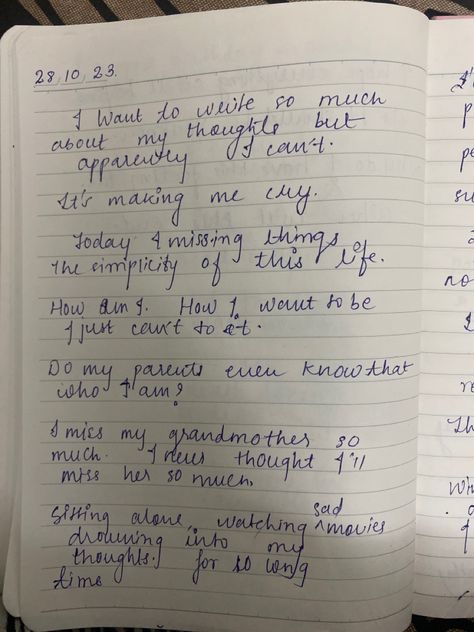 28.10.23.
I want to write so much
about my thoughts but
apparently I can't.
It's making me cry.
Today I missing things
The simplicity of this life.
How am I. How I want to be
I just can't to it.
Do my parents even know that
who I am?
I miss my grandmother so
much. I never thought I'll
miss her so much.
Sitting alone, watching sad movies
drowning into my
thoughts. for so long
time